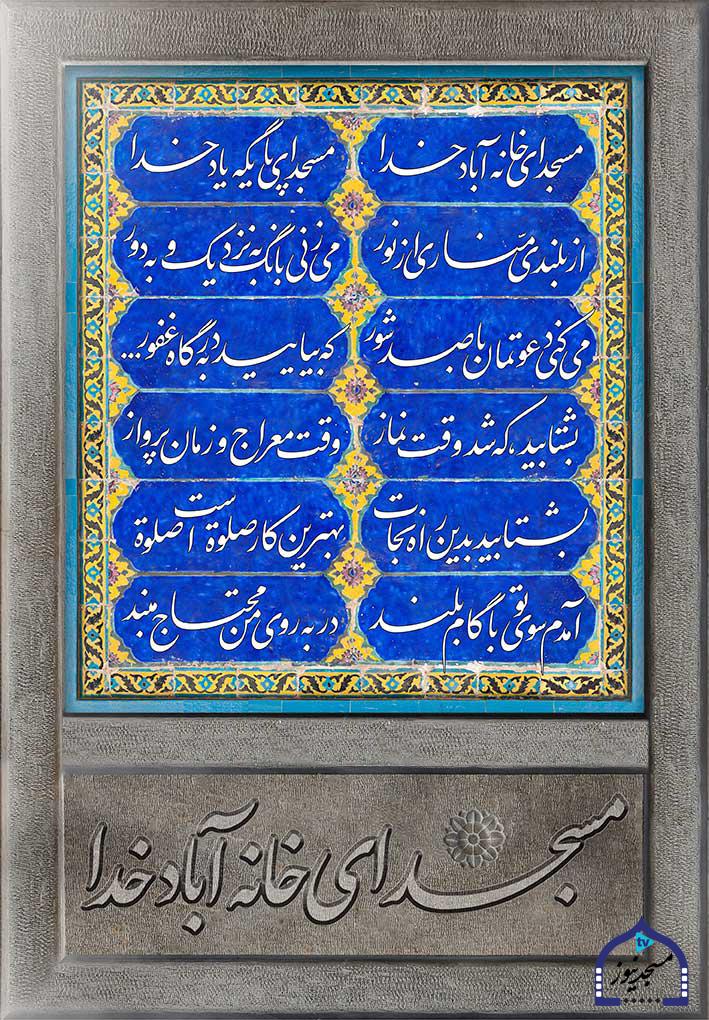 مسجد ای خانه آباد خدا
مسجد ای پایگه یاد خدا
از بلندی مناری از نور
می زنی بانگ به نزدیک و به دور
می کنی دعوتمان با صد شور
که بیایید به درگاه غفور...
بشتابید، که شد وقت نماز
وقت معراج و زمان پرواز
بشتابید بدین راه نجات
بهترین کار صلوة است صلوة
آمدم سوی تو با گام بلند
در به روی من محتاج مبند
مسجد ای خانه آباد خدا
tv
مسجدنیوز